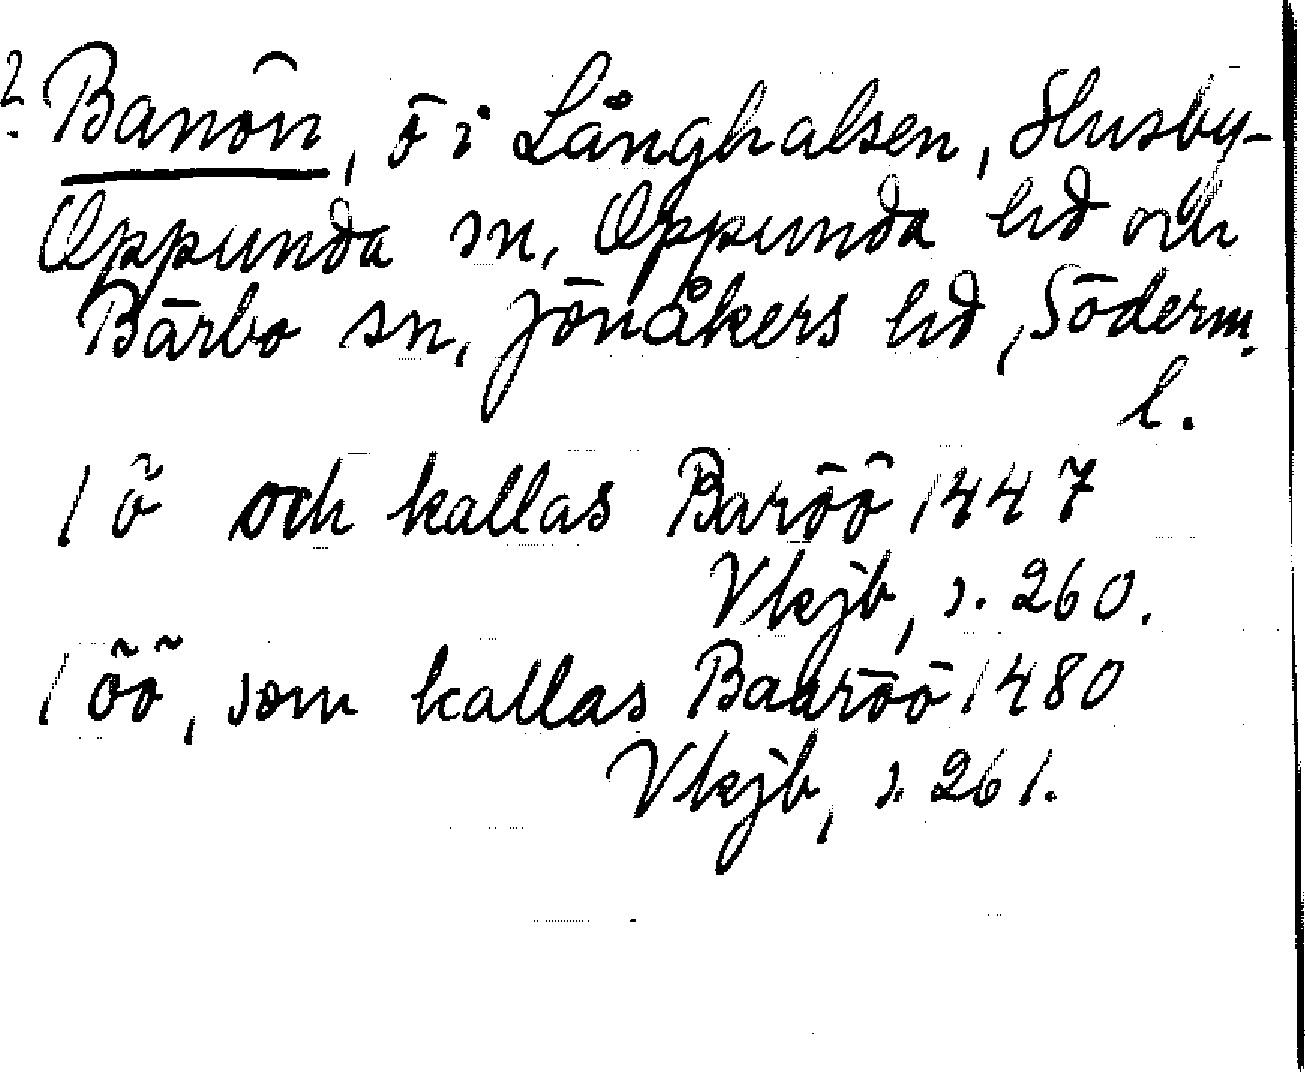 ? Banön, ö i Långhalsen, Husby-
Oppunda sn, Oppunda hd och
Bärbo sn, Jönåkers hd, Söderm.
l.
1 ö och kallas Baröö 1447
Vkjb, s. 260.
1 öö, som kallas Baaröö 1480
Vkjb, s. 261.